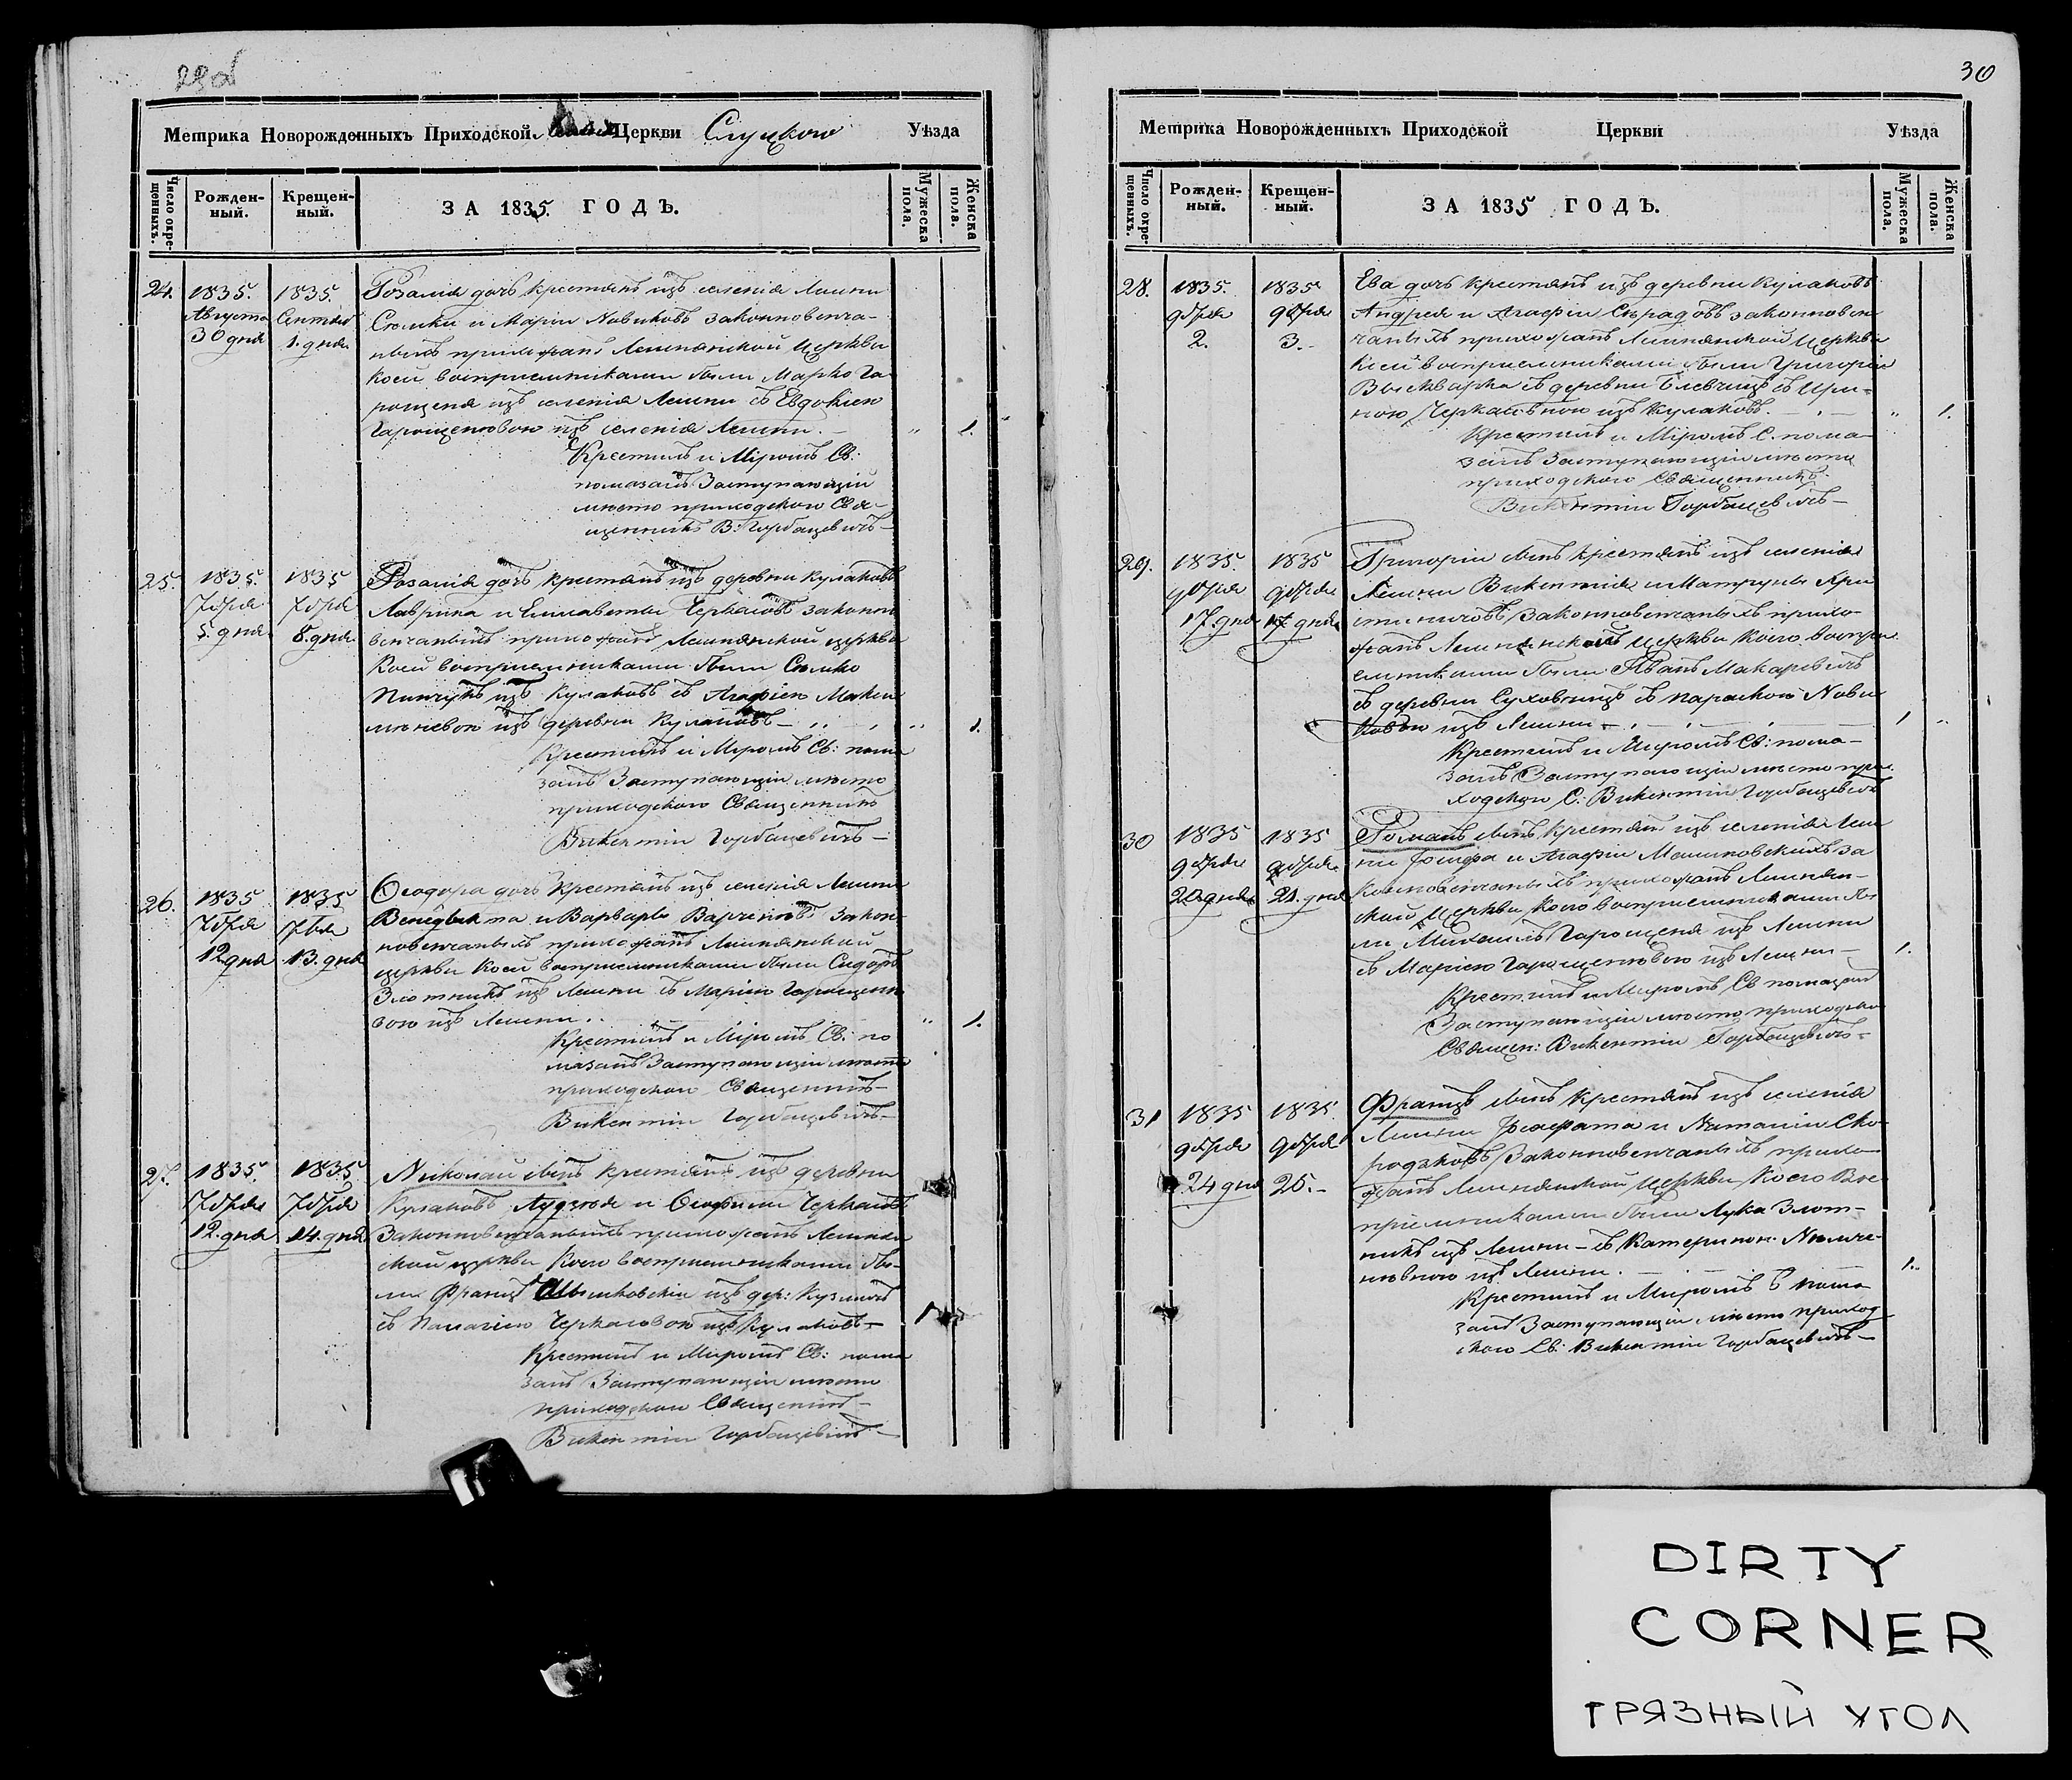 29об
Метрика Новорожденныхъ Приходской Церкви Слуцкого Уѣзда
Число окрещенныхъ.
Рожденный.
Крещенный.
ЗА 1835. ГОДЪ.
Мужеска пола.
Женска пола.
24. 1835. Августа 30 дня 1835. 1. дня
Розалія дочь крестьянъ изъ селенія Лешни
и Маріи Новиковъ законновенча-
ныхъ прихожанъ Лешнянской Церкви
коей воспріемниками были Марко Га-
рощеня изъ селенія Лешни съ Евдокіею
Гарощеновою изъ селенія Лешни. — „ 1.
Крестилъ и Мѵромъ Св:
помазалъ Заступающій
мѣсто приходского Свя-
щенникъ В: Горбацевичъ —
25. 1835. 7бря 5. дня 1835 7бря 8. дня
Розалія дочь крестьянъ изъ деревни Кулаковъ
Лаврина и Елисаветы Черкасовъ законно
венчаныхъ прихожанъ Лешнянской церкви
коей воспріемниками были
Пинчукъ изъ Кулаковъ съ Агафіею
изъ деревни Кулаковъ — „ 1.
Крестилъ и Мѵромъ Св: пома
залъ Заступающій мѣсто
приходского Священникъ
Викентій Горбацевичъ —
26. 1835 7бря 12 дня 1835 7бря 13. дня
Ѳеодора дочь крестьянъ изъ селенія Лешни
Венедыкта и Варвары законно-
новенчаныхъ прихожанъ Лешнянской
церкви коей воспріемниками были Сидоръ
Злотникъ изъ Лешни съ Маріею Гарощено
вою изъ Лешни. „ 1.
Крестилъ и Мѵромъ Св: по
мазалъ Заступающій мѣсто
приходского Священникъ —
Викентій Горбацевичъ —
27. 1835. 7бря 12. дня 1835 7бря 14. дня
Николай сынъ крестьянъ изъ деревни
Кулаковъ и Черкасовъ
Законновенчаныхъ прихожанъ Лешнян
ской церкви коего воспріемниками бы-
ли Францъ изъ дер:
съ Палагіею Черкасовою изъ Кулаковъ — 1
Крестилъ и Мѵромъ Св: пома
залъ Заступающій мѣсто
приходского Священникъ —
Викентій Горбацевичъ —
30
Метрика Новорожденныхъ Приходской Церкви Уѣзда
Число окрещенныхъ.
Рожденный.
Крещенный.
ЗА 1835 ГОДЪ.
Мужеска пола.
Женска пола.
28. 1835. 9бря 2. 1835 9бря 3. —
Ева дочь крестьянъ изъ деревни Кулаковъ
Андрея и Агафіи законновен
чаныхъ прихожанъ Лешнянской Церкви
коей воспріемниками были Григорій
съ деревни съ Ири-
ною Черкасовною изъ Кулаковъ. — „ 1.
Крестилъ и Мѵромъ С. пома
залъ Заступающій мѣсто
приходского Священникъ
Викентій Горбацевичъ —
29. 1835. 9бря 17. дня 1835 9бря 17 дня
Григорій сынъ крестьянъ изъ селенія
Лешни Викентія и Матруны
Законновенчаныхъ прихо-
жанъ Лешнянской Церкви коего воспрі
емниками были Иванъ Макаревичъ
съ деревни съ Параскою Нови
ковою изъ Лешни — 1 „
Крестилъ и Мѵромъ Св: пома-
залъ Заступающій мѣсто при
ходского С: Викентій Горбацевичъ
30 1835 9бря 20. дня 1835 9бря 21. дня
Романъ сынъ крестьянъ изъ селенія Леш
ни и Агафіи Малиновскихъ за
конновенчаныхъ прихожанъ Лешнян-
ской Церкви коего воспріемниками бы
ли Михаилъ Гарощеня изъ Лешни
съ Маріею Гарощеновою изъ Лешни — 1.
Крестилъ и Мѵромъ Св помазалъ
Заступающій мѣсто приходско
Священ: Викентій Горбацевичъ —
31 1835 9бря 24 дня 1835. 9бря 25. —
Францъ сынъ крестьянъ изъ селенія
Лешни и Ско-
Законновенчаныхъ прихо
жанъ Лешнянской Церкви коего Вос
пріемниками были Лука Злот-
никъ изъ Лешни — съ Катериною
изъ Лешни. 1. „
Крестилъ и Мѵромъ С пома
залъ Заступающій мѣсто приход
ского Св: Викентій Горбацевичъ —
DIRTY
CORNER
ГРЯЗНЫЙ УГОЛ